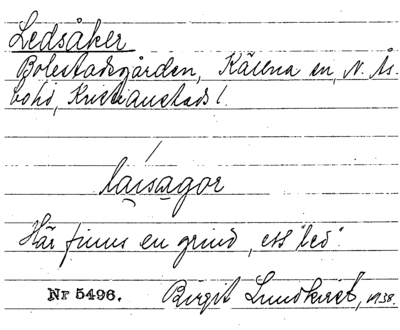 Ledsåker
Bolestadsgården, Källna sn, N. Ås-
bohd, Kristianstads l.
laisagor
Här finns en grind, ett "led".
NF 5496. Birgit Lundkvist, 1938.